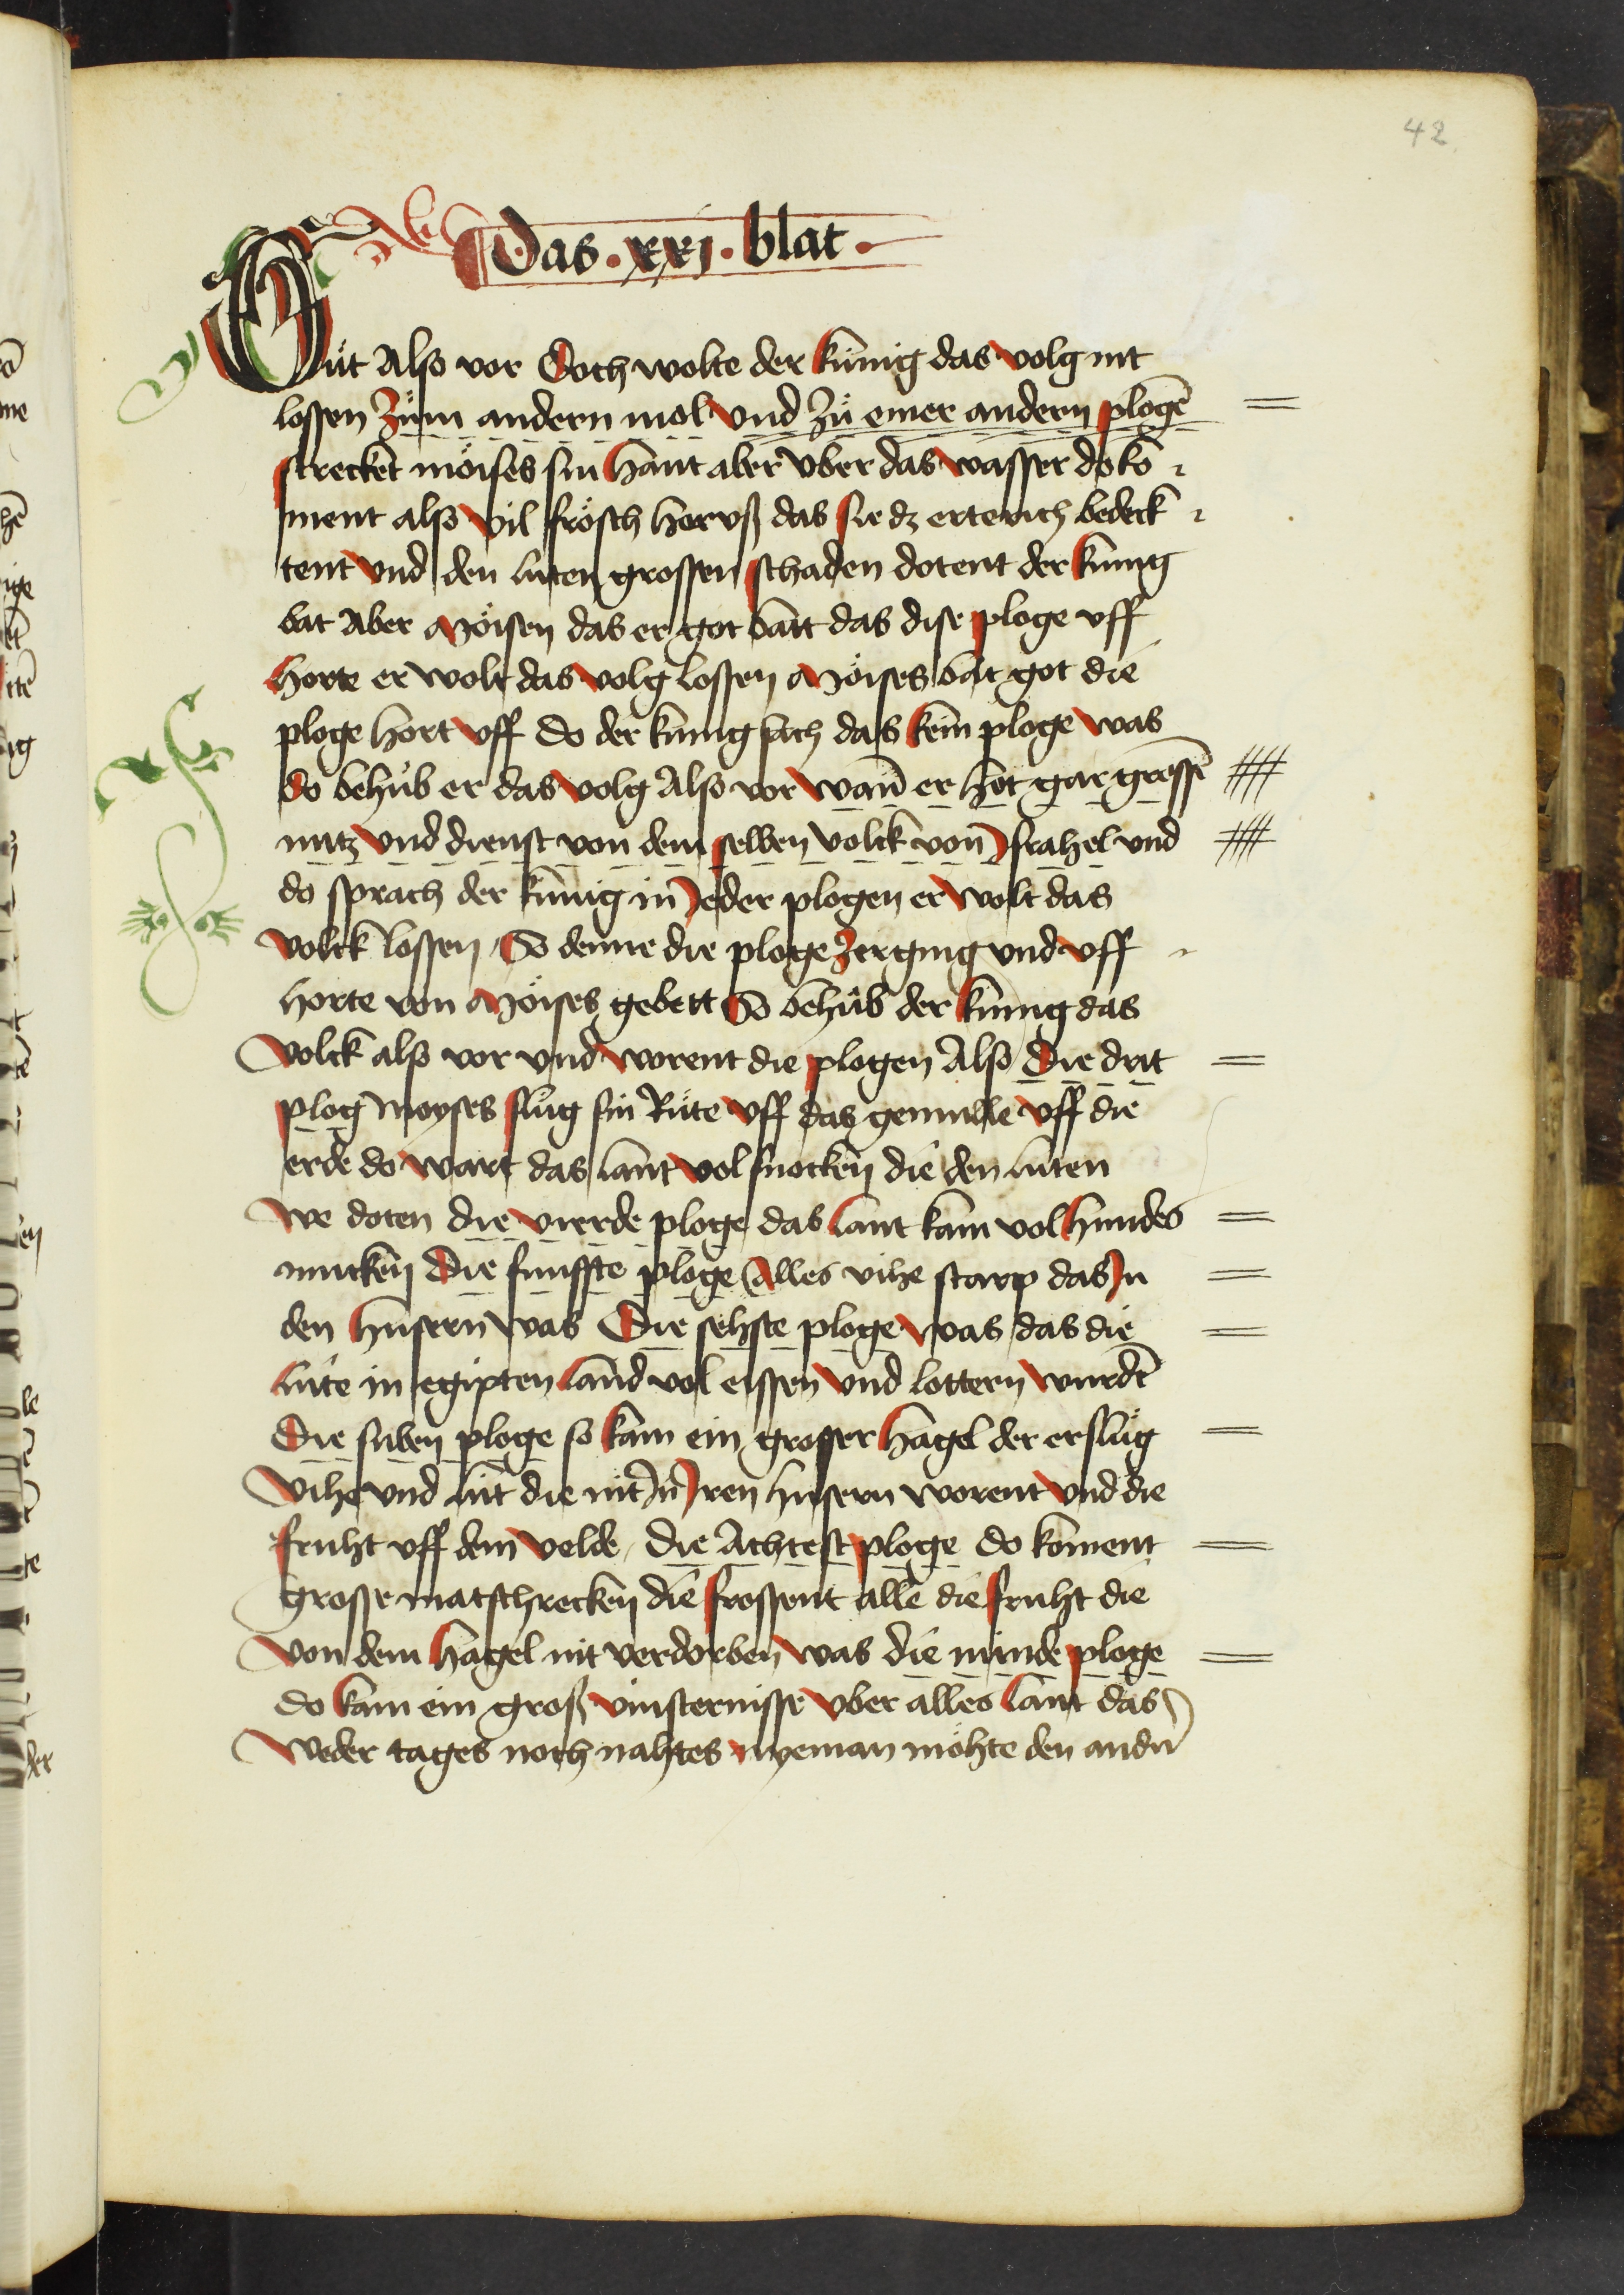 42
Das . xxj . blat .
Guͦt Also vor Doch wolte der kunig das volg nit
lossen Zuͦm andern mol vnd Zuͦ einer andern plogē
strecket möises sin hant aber vber das wasser do ko
ment also vil frösch hervß das sie dz erterich bedeck
tent vnd den luten grossen schaden dotent der kunig
bat Aber Möisen das er got batt das dise ploge vff
horte er wolt das volg lossen Möises bat got die
ploge hort vff do der kunig sach das kein ploge was
do behuͦb er das volg Also vor wann̄ er hot gar grossē
nutz vnd dienst von dem selben volck von Jsrahel vnd
do sprach der kunig in Jeder plogen er wolt das
volck lossen So denne die ploge zerging vnd vff
horte von Möises gebett So behuͦb der kunig das
volck also vor vnd worent die plogen Also Die drit
plog Moyses sluͦg sin Ruͦte vff das gemulle vff die
erde do wart das lant vol snocken die den luten
we doten die vierde ploge das lant kam vol hundes
mucken Die funffte ploge Alles vihe starp das Jn
den husern was Die sehste ploge was das die
lute in egipten land vol eissen vnd lottern wurdē
Die suben ploge so kam ein grosser hagel der ersluͦg
vihe vnd lut die nit Jn Jren husern worent vnd die
fruht vff dem velde die Achtest ploge do koment
grosse matschrecken die frossent alle die fruht die
von dem hagel nit verdorben was die nunde ploge
do kam ein groß vinsternisse vber alles lant das
weder tages noch nahtes nyeman möhte den andn̄